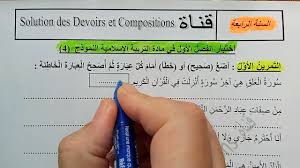 السنة الرابعة
قناة Solution des Devoirs et Compositions
اختبار الفصل الأول في مادة التربية الإسلامية النموذج (4)
التمرين الأول : أضع (صحيح) أو (خطأ) أمام كل عبارة ثم أصحح العبارة الخاطئة :
سورة العلق هي آخر سورة أنزلت في القرآن الكريم
من صفات عباد الرحمن